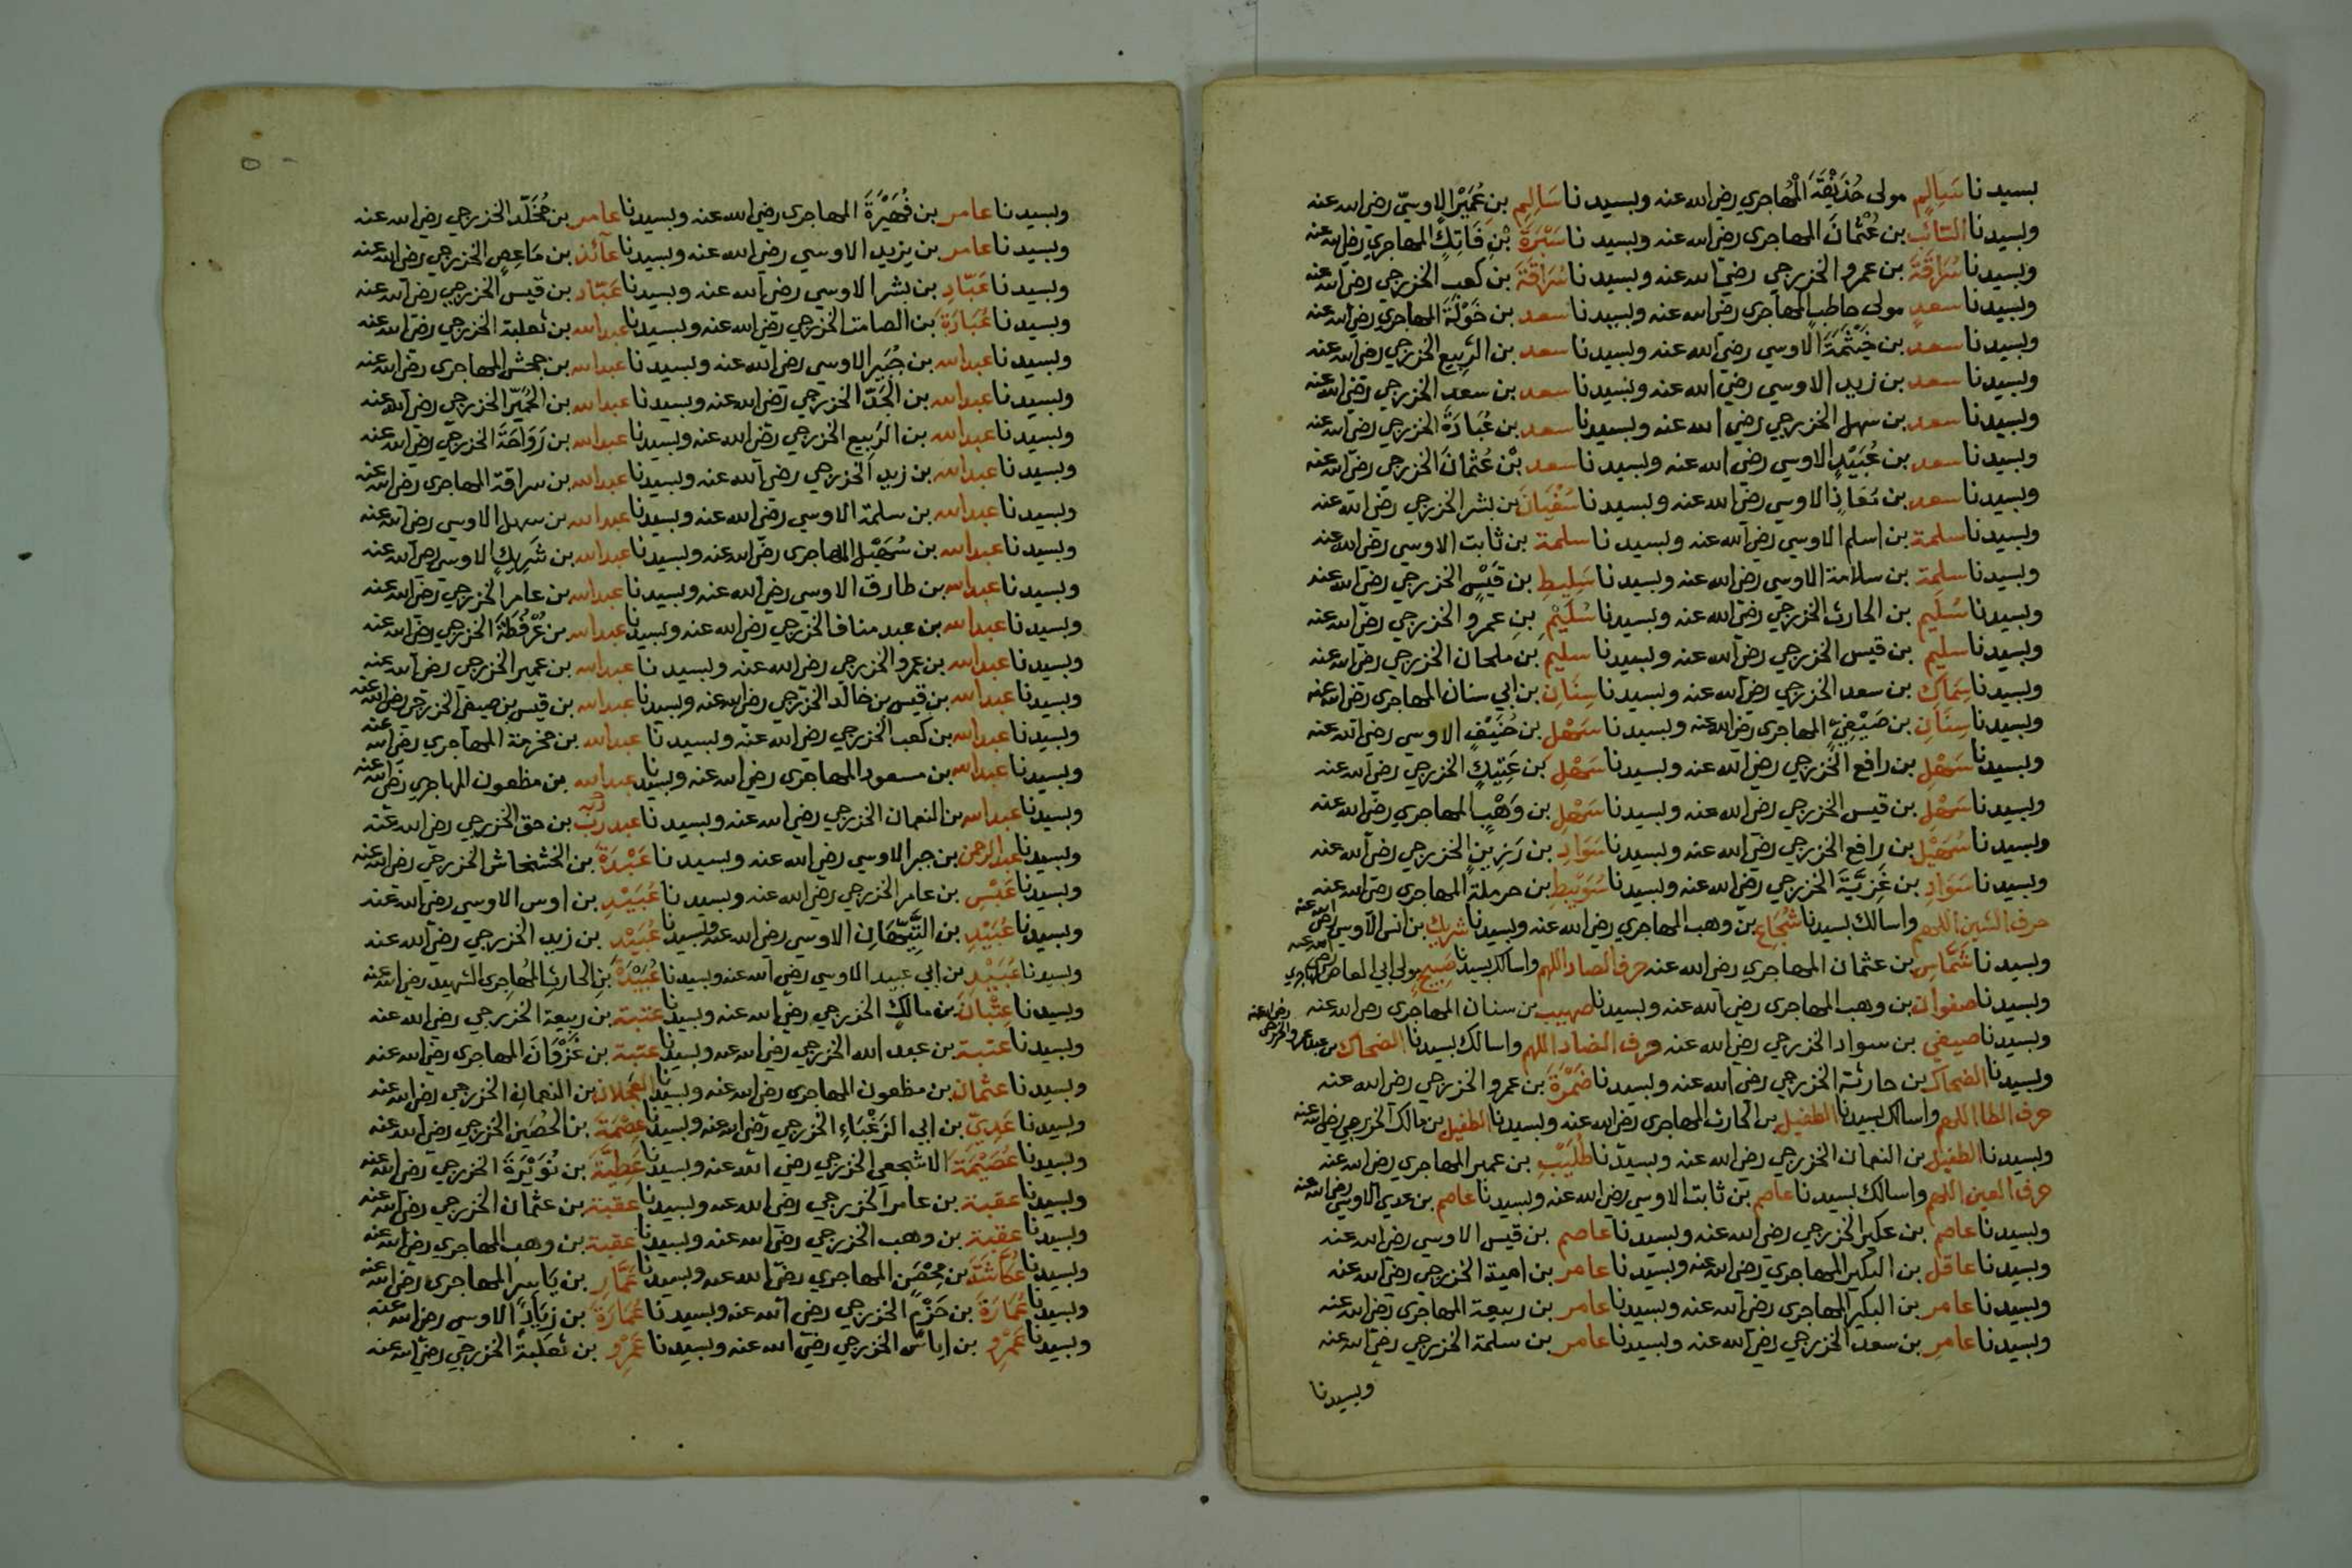 بسيدنا سَالِمٍ مولى حُذَيْفَةَ الْمُهاجري رضي الله عنه وبسيدنا سَالِمِ بنِ عُمَيْر الاوسيّ رضي الله عنه
وبسيدنا السَّائب بن عُثْمَانَ المهاجري رضي الله عنه وبسيدنا سَبْرَةَ بْنِ فَاتِكٍ المهاجري رضي الله عنه
وبسيدنا سُرَاقَةَ بن عمرو الخزرجي رضي الله عنه وبسيدنا سُرَاقَةَ بن كعب الخزرجي رضي الله عنه
وبسيدنا سعدٍ مولى حاطبٍ المهاجري رضي الله عنه وبسيدنا سعد بن خَوْلَةَ المهاجري رضي الله عنه
وبسيدنا سعد بن خَيْثَمَةَ الاوسي رضي الله عنه وبسيدنا سعد بن الرَّبِيعِ الخزرجي رضي الله عنه
وبسيدنا سعد بن زيد الاوسي رضي الله عنه وبسيدنا سعد بن سعد الخزرجي رضي الله عنه
وبسيدنا سعد بن سهل الخزرجي رضي الله عنه وبسيدنا سعد بن عُبَادَةَ الخزرجي رضي الله عنه
وبسيدنا سعد بن عُبَيْدٍ الاوسي رضي الله عنه وبسيدنا سعد بْن عُثْمَانَ الخزرجي رضي الله عنه
وبسيدنا سعد بن مُعَاذٍ الاوسي رضي الله عنه وبسيدنا سُفْيَانَ بن بشر الخزرجي رضي الله عنه
وبسيدنا سلمة بن اسلم الاوسي رضي الله عنه وبسيدنا سلمة بن ثابت الاوسي رضي الله عنه
وبسيدنا سلمة بن سلامة الاوسي رضي الله عنه وبسيدنا سَلِيطِ بن قَيْسٍ الخزرجي رضي الله عنه
وبسيدنا سُلَيم بن الحارث الخزرجي رضي الله عنه وبسيدنا سُلَيْمِ بنِ عمرو الخزرجي رضي الله عنه
وبسيدنا سليم بن قيس الخزرجي رضي الله عنه وبسيدنا سليم بن ملحان الخزرجي رضي الله عنه
وبسيدنا سِمَاكِ بن سعد الخزرجي رضي الله عنه وبسيدنا سِنَانِ بن ابي سنان المهاجري رضي الله عنه
وبسيدنا سِنَانِ بن صَيْفِيٍّ المهاجري رضي الله عنه وبسيدنا سَهْل بن حُنَيْفٍ الاوسي رضي الله عنه
وبسيدنا سَهْلِ بن رافع الخزرجي رضي الله عنه وبسيدنا سَهْلِ بن عَتِيكٍ الخزرجي رضي الله عنه
وبسيدنا سَهْلِ بن قيس الخزرجي رضي الله عنه وبسيدنا سَهْلِ بن وَهْبٍ المهاجري رضي الله عنه
وبسيدنا سُهَيْلِ بن رافع الخزرجي رضي الله عنه وبسيدنا سَوَادِ بن رَزِينٍ الخزرجي رضي الله عنه
وبسيدنا سَوَادِ بن غَزِيَّةَ الخزرجي رضي الله عنه وبسيدنا سُوَيْبِطِ بن حرملة المهاجري رضي الله عنه
حرف الشين اللهم واسالك بسيدنا شُجَاعِ بن وهب المهاجري رضي الله عنه وبسيدنا شريك بن انس الاوسي رضي الله عنه
وبسيدنا شَمَّاسِ بن عثمان المهاجري رضي الله عنه حرف الصاد اللهم واسالك بسيدنا صَبِيحٍ مولى ابي العاص المهاجري رضي الله عنه
وبسيدنا صفوان بن وهب المهاجري رضي الله عنه وبسيدنا صهيب بن سنان المهاجري رضي الله عنه
وبسيدنا صيفي بن سواد الخزرجي رضي الله عنه حرف الضاد اللهم واسالك بسيدنا الضحاك بن عبد عمرو الخزرجي رضي الله عنه
وبسيدنا الضحاك بن حارثة الخزرجي رضي الله عنه وبسيدنا ضَمْرَةَ بن عمرو الخزرجي رضي الله عنه
حرف الطا اللهم واسالك بسيدنا الطفيل بن الحارث المهاجري رضي الله عنه وبسيدنا الطفيل بن مالك الخزرجي رضي الله عنه
وبسيدنا الطفيل بن النعمان الخزرجي رضي الله عنه وبسيدنا طُلَيْبِ بن عمير المهاجري رضي الله عنه
حرف العين اللهم واسالك بسيدنا عاصم بن ثابت الاوسي رضي الله عنه وبسيدنا عاصم بن عدي الاوسي رضي الله عنه
وبسيدنا عاصم بن عكير الخزرجي رضي الله عنه وبسيدنا عاصم بن قيس الاوسي رضي الله عنه
وبسيدنا عاقل بن البكير المهاجري رضي الله عنه وبسيدنا عامر بن امية الخزرجي رضي الله عنه
وبسيدنا عامر بن البكير المهاجري رضي الله عنه وبسيدنا عامر بن ربيعة المهاجري رضي الله عنه
وبسيدنا عامر بن سعد الخزرجي رضي الله عنه وبسيدنا عامر بن سلمة الخزرجي رضي الله عنه
وبسيدنا
٥
وبسيدنا عامر بن فُهَيْرَةَ المهاجري رضي الله عنه وبسيدنا عامر بن مُخَلَّد الخزرجي رضي الله عنه
وبسيدنا عامر بن يزيد الاوسي رضي الله عنه وبسيدنا عَائذ بن مَاعِصٍ الخزرجي رضي الله عنه
وبسيدنا عَبَّادِ بن بشر الاوسي رضي الله عنه وبسيدنا عَبَّاد بن قيس الخزرجي رضي الله عنه
وبسيدنا عُبَادَةَ بن الصامت الخزرجي رضي الله عنه وبسيدنا عبد الله بن ثعلبة الخزرجي رضي الله عنه
وبسيدنا عبد الله بن جُبَير الاوسي رضي الله عنه وبسيدنا عبد الله بن جحش المهاجري رضي الله عنه
وبسيدنا عبد الله بن الجَدّ الخزرجي رضي الله عنه وبسيدنا عبد الله بن الحُمَيِّر الخزرجي رضي الله عنه
وبسيدنا عبد الله بن الرَبيع الخزرجي رضي الله عنه وبسيدنا عبد الله بن رَوَاحَةَ الخزرجي رضي الله عنه
وبسيدنا عبد الله بن زيد الخزرجي رضي الله عنه وبسيدنا عبد الله بن سراقة المهاجري رضي الله عنه
وبسيدنا عبد الله بن سلمة الاوسي رضي الله عنه وبسيدنا عبد الله بن سهل الاوسي رضي الله عنه
وبسيدنا عبد الله بن سُهَيْل المهاجري رضي الله عنه وبسيدنا عبد الله بن شَرِيكٍ الاوسي رضي الله عنه
وبسيدنا عبد الله بن طارق الاوسي رضي الله عنه وبسيدنا عبد الله بن عامر الخزرجي رضي الله عنه
وبسيدنا عبد الله بن عبد مناف الخزرجي رضي الله عنه وبسيدنا عبد الله بن عُرْفُطَةَ الخزرجي رضي الله عنه
وبسيدنا عبد الله بن عمرو الخزرجي رضي الله عنه وبسيدنا عبد الله بن عمير الخزرجي رضي الله عنه
وبسيدنا عبد الله بن قيس بن خالد الخزرجي رضي الله عنه وبسيدنا عبد الله بن قيس بن صيفي الخزرجي رضي الله عنه
وبسيدنا عبد الله بن كعب الخزرجي رضي الله عنه وبسيدنا عبد الله بن مخرمة المهاجري رضي الله عنه
وبسيدنا عبد الله بن مسعود المهاجري رضي الله عنه وبسيدنا عبد الله بن مظعون المهاجري رضي الله عنه
وبسيدنا عبد الله بن النعمان الخزرجي رضي الله عنه وبسيدنا عبد ربِّ بن حق الخزرجي رضي الله عنه
وبسيدنا عبد الرحمن بن جبر الاوسي رضي الله عنه وبسيدنا عَبْدَةَ بن الخشخاش الخزرجي رضي الله عنه
وبسيدنا عَبْسِ بن عامر الخزرجي رضي الله عنه وبسيدنا عُبَيْدِ بن اوس الاوسي رضي الله عنه
وبسيدنا عُبَيْدِ بن التَّيِّهَانِ الاوسي رضي الله عنه وبسيدنا عُبَيْدِ بن زيد الخزرجي رضي الله عنه
وبسيدنا عُبَيْدِ بن ابي عبيد الاوسي رضي الله عنه وبسيدنا عُبَيْدَةَ بنِ الحارث المُهاجري الشهيد رضي الله عنه
وبسيدنا عِتْبَانَ بن مالكٍ الخزرجي رضي الله عنه وبسيدنا عتبة بن ربيعة الخزرجي رضي الله عنه
وبسيدنا عتبة بن عبد الله الخزرجي رضي الله عنه وبسيدنا عتبة بن غَزْوَانَ المهاجري رضي الله عنه
وبسيدنا عثمان بن مظعون المهاجري رضي الله عنه وبسيدنا العَجْلانِ بن النعمان الخزرجي رضي الله عنه
وبسيدنا عَدِيّ بن ابي الزَغْبَاءِ الخزرجي رضي الله عنه وبسيدنا عِصْمَةَ بن الحُصَينِ الخزرجي رضي الله عنه
وبسيدنا عُصَيْمَةَ الاشجعي الخزرجي رضي الله عنه وبسيدنا عَطِيَّةَ بن نُوَيْرَةَ الخزرجي رضي الله عنه
وبسيدنا عقبة بن عامر الخزرجي رضي الله عنه وبسيدنا عقبة بن عثمان الخزرجي رضي الله عنه
وبسيدنا عقبة بن وهب الخزرجي رضي الله عنه وبسيدنا عقبة بن وهب المهاجري رضي الله عنه
وبسيدنا عُكَّاشَةَ بن مِحْصَنٍ المهاجري رضي الله عنه وبسيدنا عَمَّارِ بن يَاسِرٍ المهاجري رضي الله عنه
وبسيدنا عُمَارَةَ بن حَزْمٍ الخزرجي رضي الله عنه وبسيدنا عُمَارَةَ بن زِيَادٍ الاوسي رضي الله عنه
وبسيدنا عَمْرِو بن اياس الخزرجي رضي الله عنه وبسيدنا عَمْرِو بن ثعلبة الخزرجي رضي الله عنه